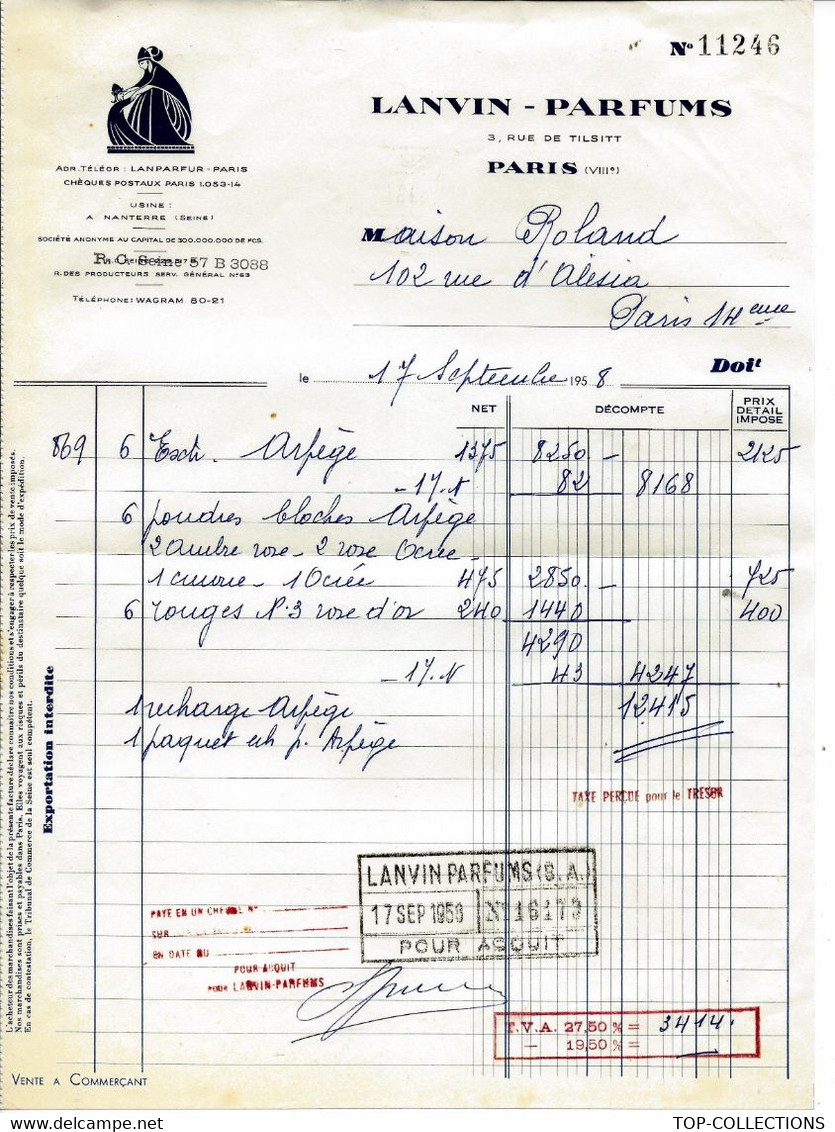 Nº 11246
LANVIN - PARFUMS
3, RUE DE TILSITT
PARIS (VIIIe)
ADR. TÉLÉGR : LANPARFUR - PARIS
CHÈQUES POSTAUX PARIS 1.053-14
USINE :
A NANTERRE (SEINE)
SOCIÉTÉ ANONYME AU CAPITAL DE 300.000.000 DE FCS.
R. C. Seine 57 B 3088
R. DES PRODUCTEURS SERV. GÉNÉRAL Nº 63
TÉLÉPHONE: WAGRAM 80-21
Maison Roland
102 rue d'Alésia
Paris 14 eme
le 17 Septembre 1958 Doit
NET DÉCOMPTE PRIX DETAIL IMPOSÉ
869 6 Extr. Arpège 1375 8250 — 2125
- 1% 82 8168
6 poudres Arpège
2 ambre rose - 2 rose Ocrée -
1 - 1 Ocrée 475 2850 — 725
6 rouges Nº 3 rose d'or 240 1440 400
4290
- 1% 43 4247
1 recharge Arpège 12415
1 paquet ech p. Arpège
TAXE PERÇUE pour le TRESOR
LANVIN PARFUMS (S. A.)
17 SEP 1958 Nº 16173
POUR ACQUIT
PAYE EN UN CHEQUE Nº
SUR
EN DATE DU
POUR ACQUIT
POUR LANVIN-PARFUMS
T.V.A. 27,50 % = 3414.
— 19,50 % =
VENTE A COMMERÇANT
Exportation interdite
L'acheteur des marchandises faisant l'objet de la présente facture déclare connaître nos conditions et s'engager à respecter les prix de vente imposés.
Nos marchandises sont prises et payables dans Paris. Elles voyagent aux risques et périls du destinataire quelque soit le mode d'expédition.
En cas de contestation, le Tribunal de Commerce de la Seine est seul compétent.
TOP-COLLECTIONS